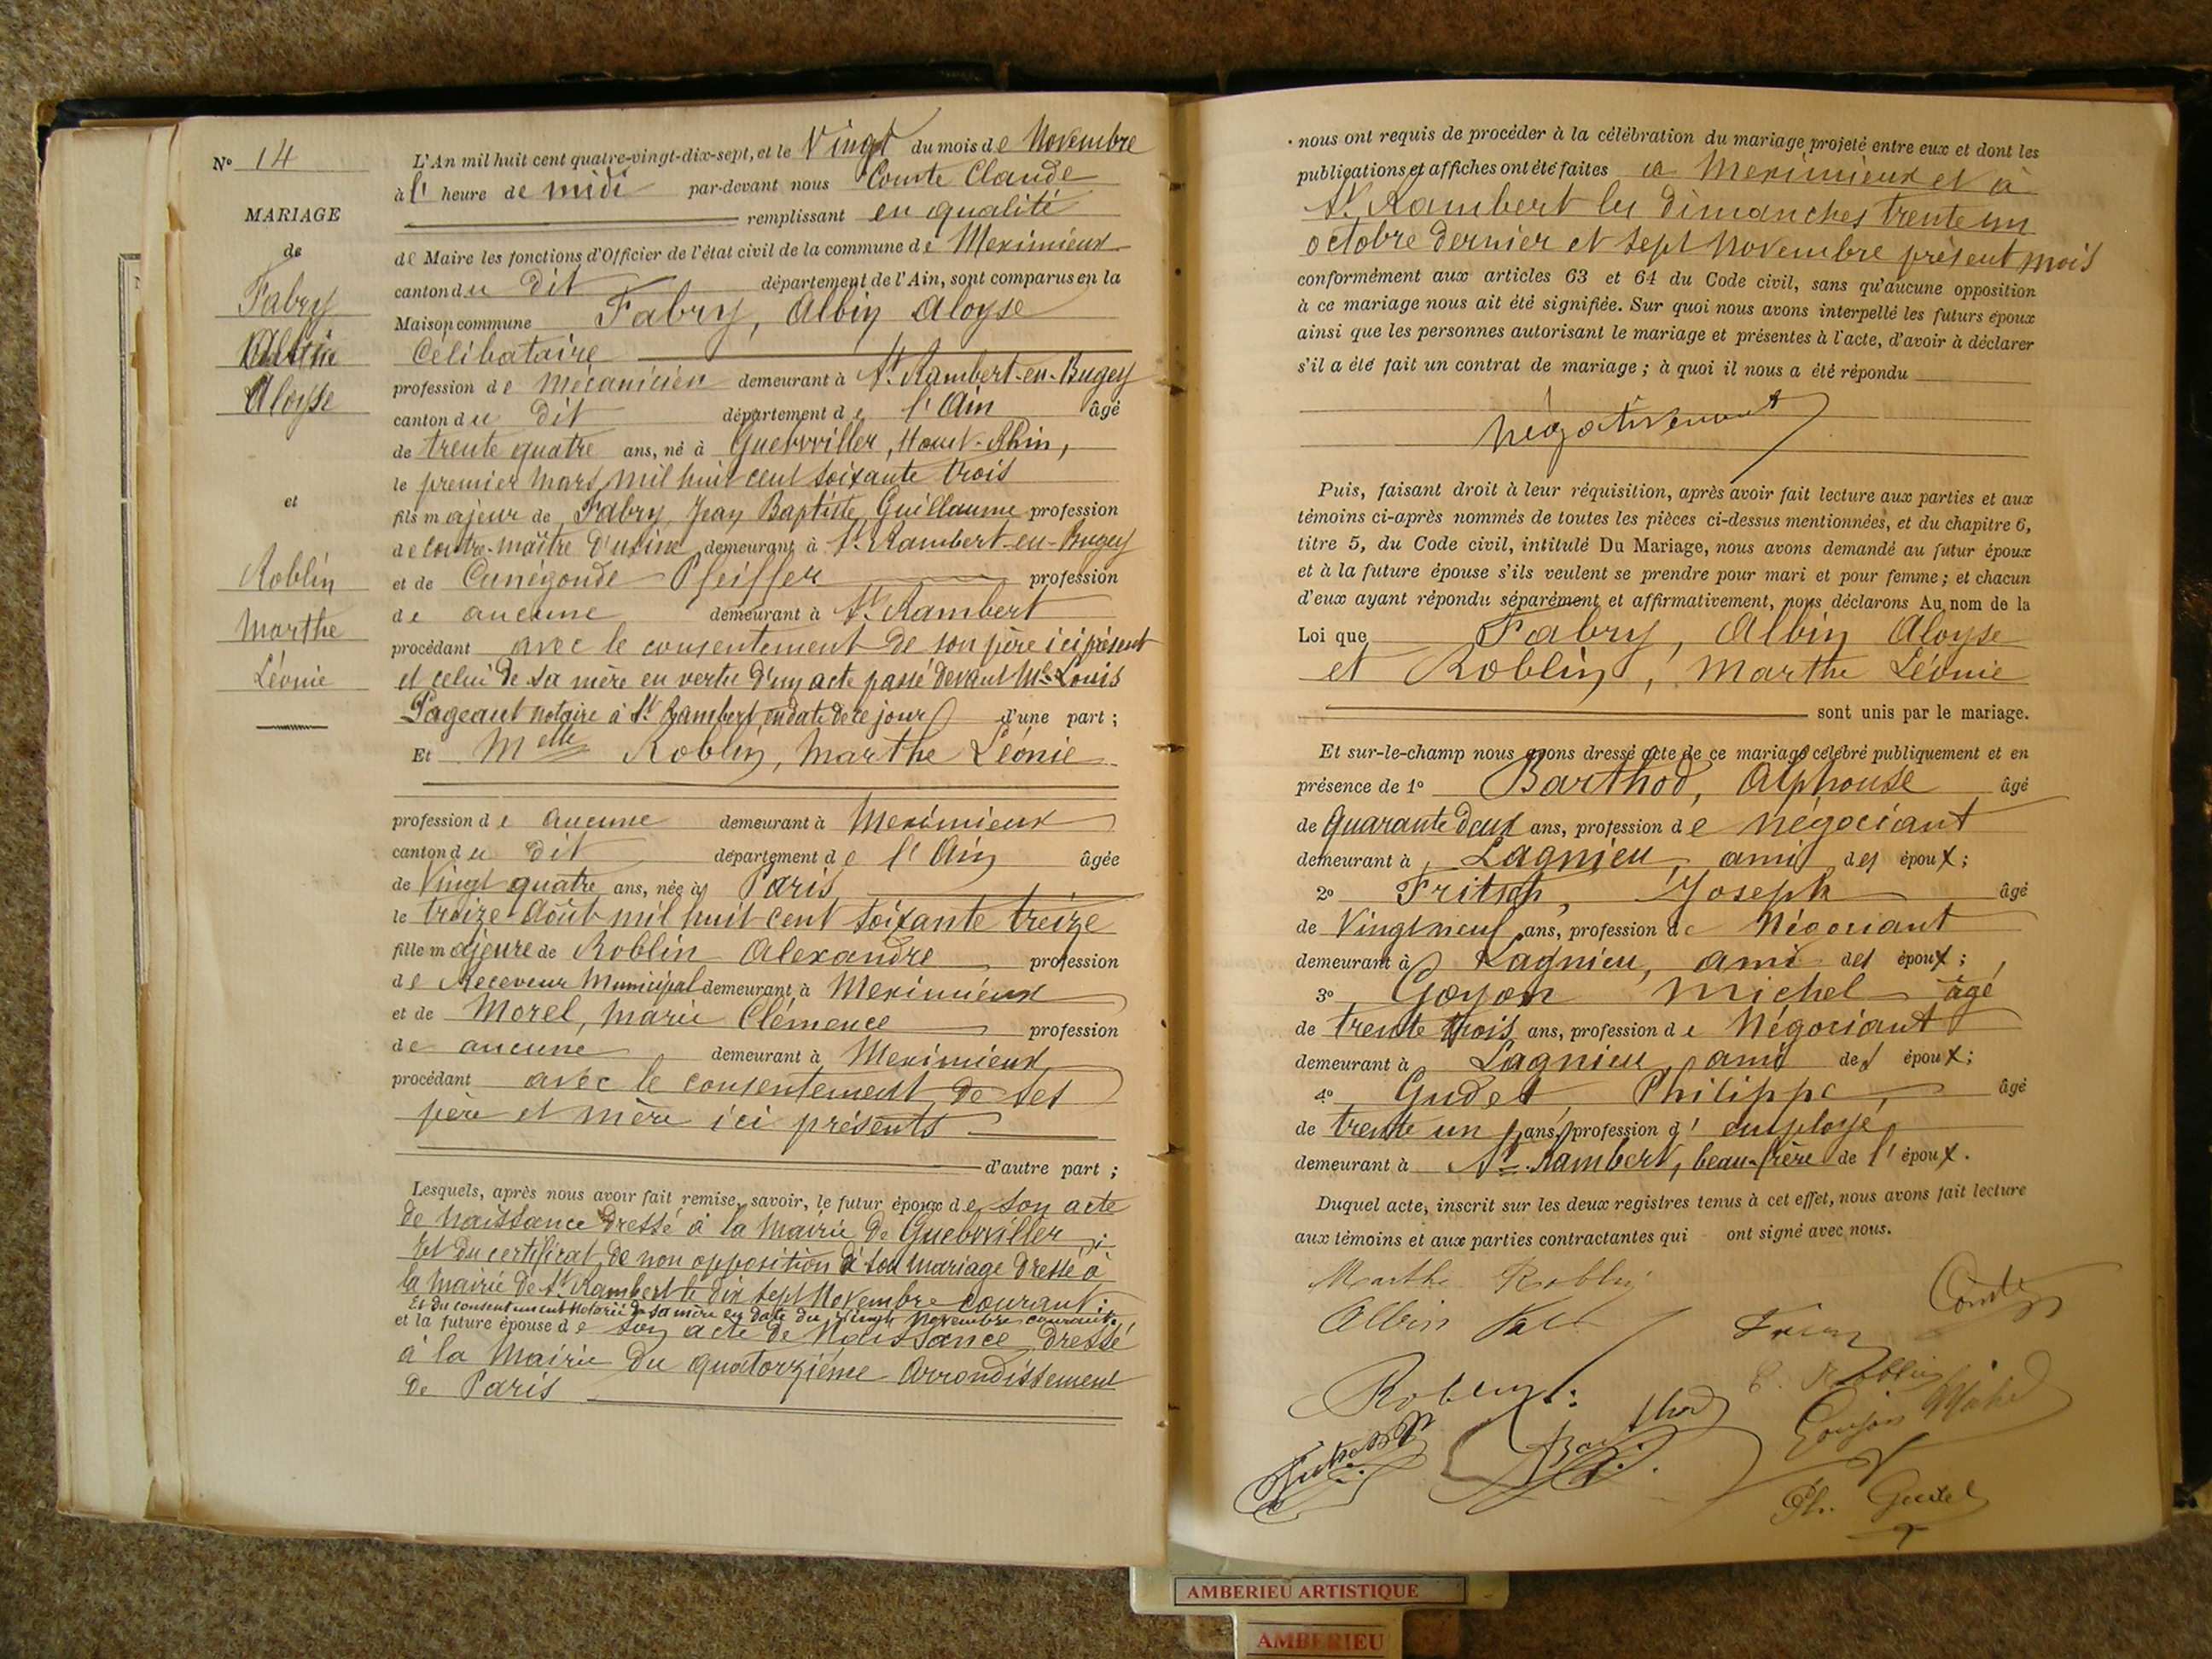 N° 14
MARIAGE
de
Fabry
Albin
Aloyse
et
Roblin
Marthe
Léonie
L'An mil huit cent quatre-vingt-dix-sept, et le Vingt du mois de Novembre
à l' heure de midi par-devant nous Comte Claude
remplissant en qualité
de Maire les fonctions d'Officier de l'état civil de la commune de Meximieux
canton du dit département de l'Ain, sont comparus en la
Maison commune Fabry, Albin Aloyse
Célibataire
profession de mécanicien demeurant à St Rambert-en-Bugey
canton du dit département de l'Ain âgé
de trente quatre ans, né à Guebwiller, Haut-Rhin,
le premier Mars mil huit cent soixante trois
fils majeur de Fabry, Jean Baptiste Guillaume profession
de contre-maître d'usine demeurant à St Rambert-en-Bugey
et de Cunégonde Pfeiffer profession
de aucune demeurant à St Rambert
procédant avec le consentement de son père ici présent
et celui de sa mère en vertu d'un acte passé devant Me Louis
Pageaut notaire à St Rambert, en date de ce jour d'une part ;
Et Melle Roblin, Marthe Léonie
profession de aucune demeurant à Meximieux
canton du dit département de l'Ain âgée
de Vingt quatre ans, née à Paris
le treize Août mil huit cent soixante treize
fille majeure de Roblin Alexandre profession
de Receveur Municipal demeurant à Meximieux
et de Morel, Marie Clémence profession
de aucune demeurant à Meximieux
procédant avec le consentement de ses
père et mère ici présents
d'autre part ;
Lesquels, après nous avoir fait remise, savoir, le futur époux de son acte
de Naissance dressé à la Mairie de Guebwiller ;
Et du certificat de non opposition à son mariage dressé à
la Mairie de St Rambert le dix sept Novembre courant ;
Et du consentement notarié de sa mère en date du Novembre courant,
et la future épouse de son acte de Naissance dressé
à la Mairie du quatorzième Arrondissement
de Paris
nous ont requis de procéder à la célébration du mariage projeté entre eux et dont les
publications et affiches ont été faites à Meximieux et à
St Rambert les dimanches trente un
octobre dernier et sept Novembre présent mois
conformément aux articles 63 et 64 du Code civil, sans qu'aucune opposition
à ce mariage nous ait été signifiée. Sur quoi nous avons interpellé les futurs époux
ainsi que les personnes autorisant le mariage et présentes à l'acte, d'avoir à déclarer
s'il a été fait un contrat de mariage ; à quoi il nous a été répondu
négativement
Puis, faisant droit à leur réquisition, après avoir fait lecture aux parties et aux
témoins ci-après nommés de toutes les pièces ci-dessus mentionnées, et du chapitre 6,
titre 5, du Code civil, intitulé Du Mariage, nous avons demandé au futur époux
et à la future épouse s'ils veulent se prendre pour mari et pour femme ; et chacun
d'eux ayant répondu séparément et affirmativement, nous déclarons Au nom de la
Loi que Fabry, Albin Aloyse
et Roblin, Marthe Léonie
sont unis par le mariage.
Et sur-le-champ nous avons dressé acte de ce mariage célébré publiquement et en
présence de 1° Barthod, Alphonse âgé
de quarante deux ans, profession de négociant
demeurant à Lagnieu, ami des époux ;
2° Fritsch, Joseph âgé
de Vingt neuf ans, profession de Négociant
demeurant à Lagnieu, ami des époux ;
3° Goyon Michel âgé
de trente trois ans, profession de Négociant
demeurant à Lagnieu, ami des époux ;
4° Gudet Philippe, âgé
de trente un ans, profession d' employé
demeurant à St Rambert, beau-frère de l'époux.
Duquel acte, inscrit sur les deux registres tenus à cet effet, nous avons fait lecture
aux témoins et aux parties contractantes qui ont signé avec nous.
Marthe Roblin
Comte
Albin
Roblin
C. Roblin
Barthod
Goujon Michel
Ph. Gudet
AMBERIEU ARTISTIQUE
AMBERIEU